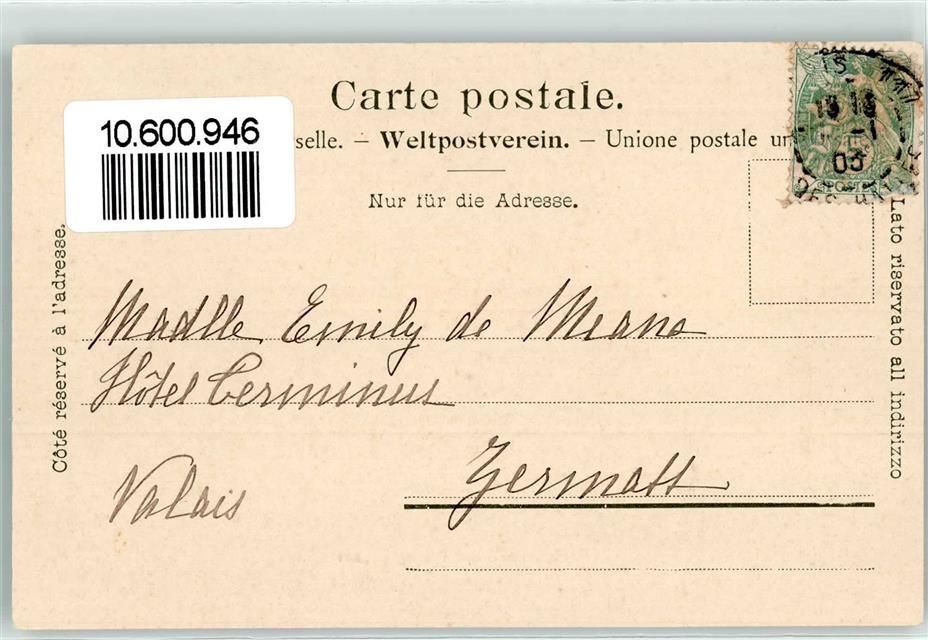 Carte postale.
10.600.946
selle. – Weltpostverein. – Unione postale un
Nur für die Adresse.
Côté réservé à l'adresse.
Lato riservato all indirizzo
03
POSTE
Madlle Emily de Meana
Hôtel Terminus
Zermatt
Valais